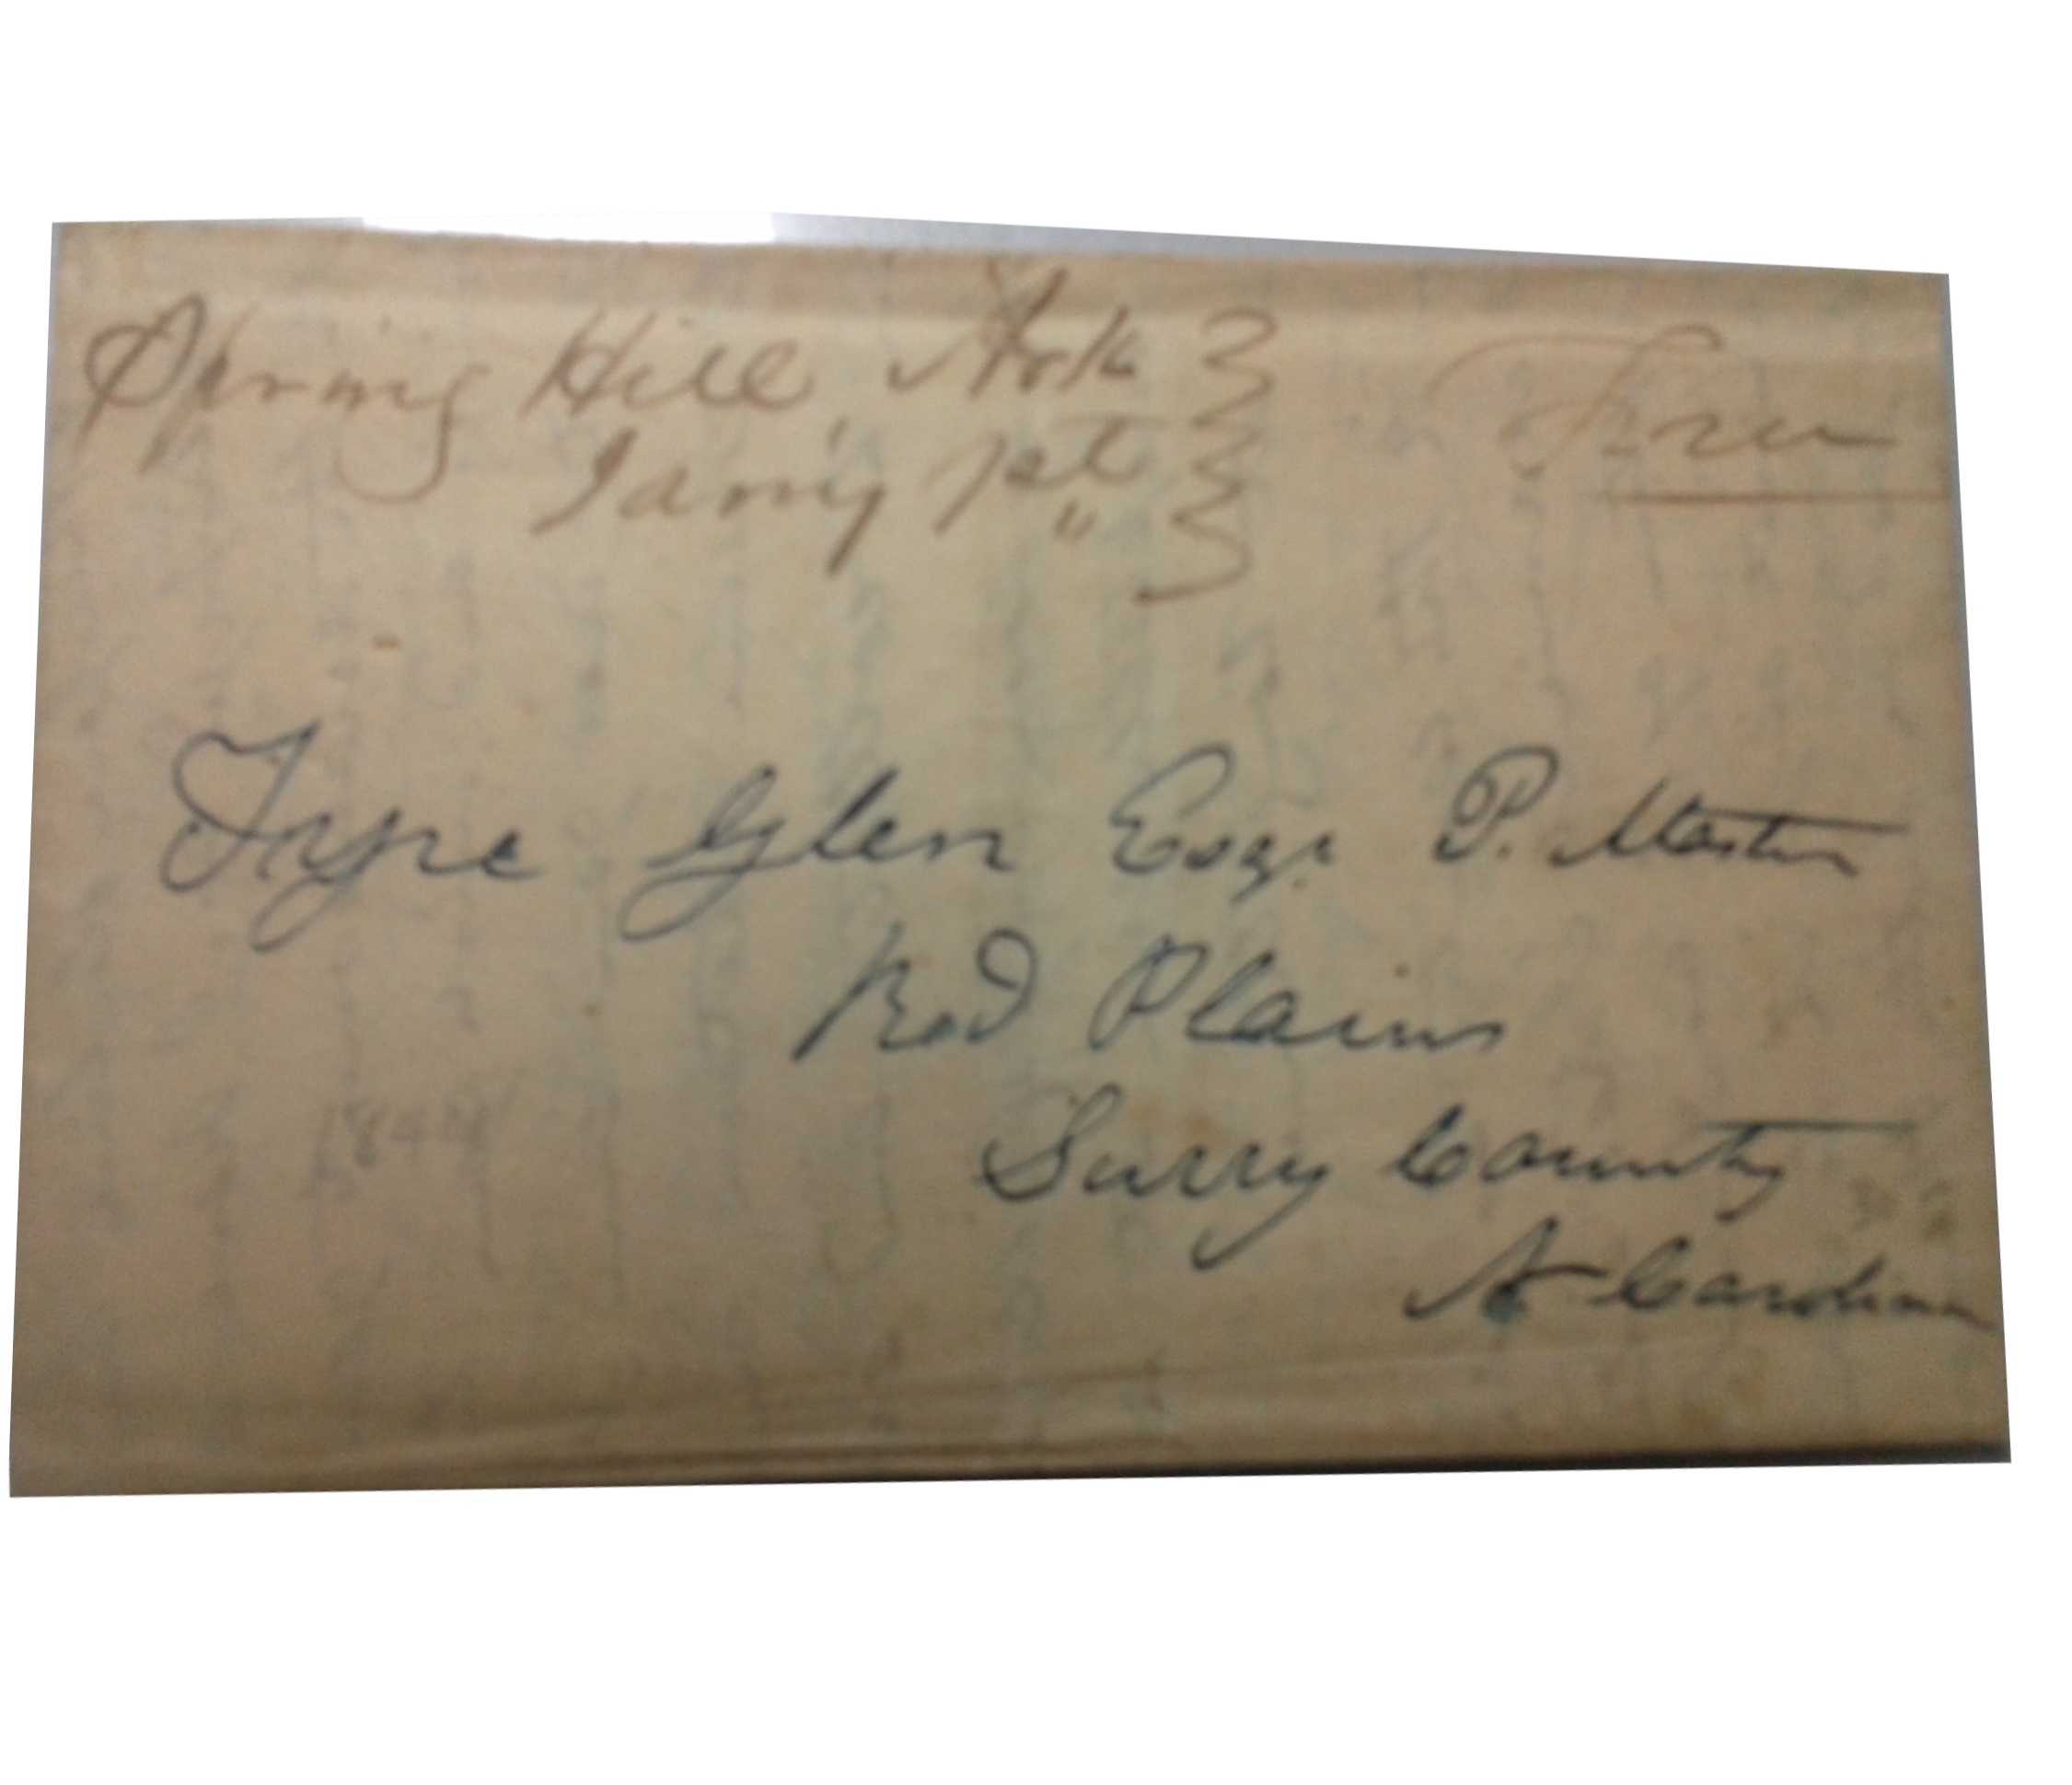 Spring Hill, Ark
Free
Jan'y 1st
Tyre Glen Esqr P. Master
Red Plains
Surry County
N Carolina
1844